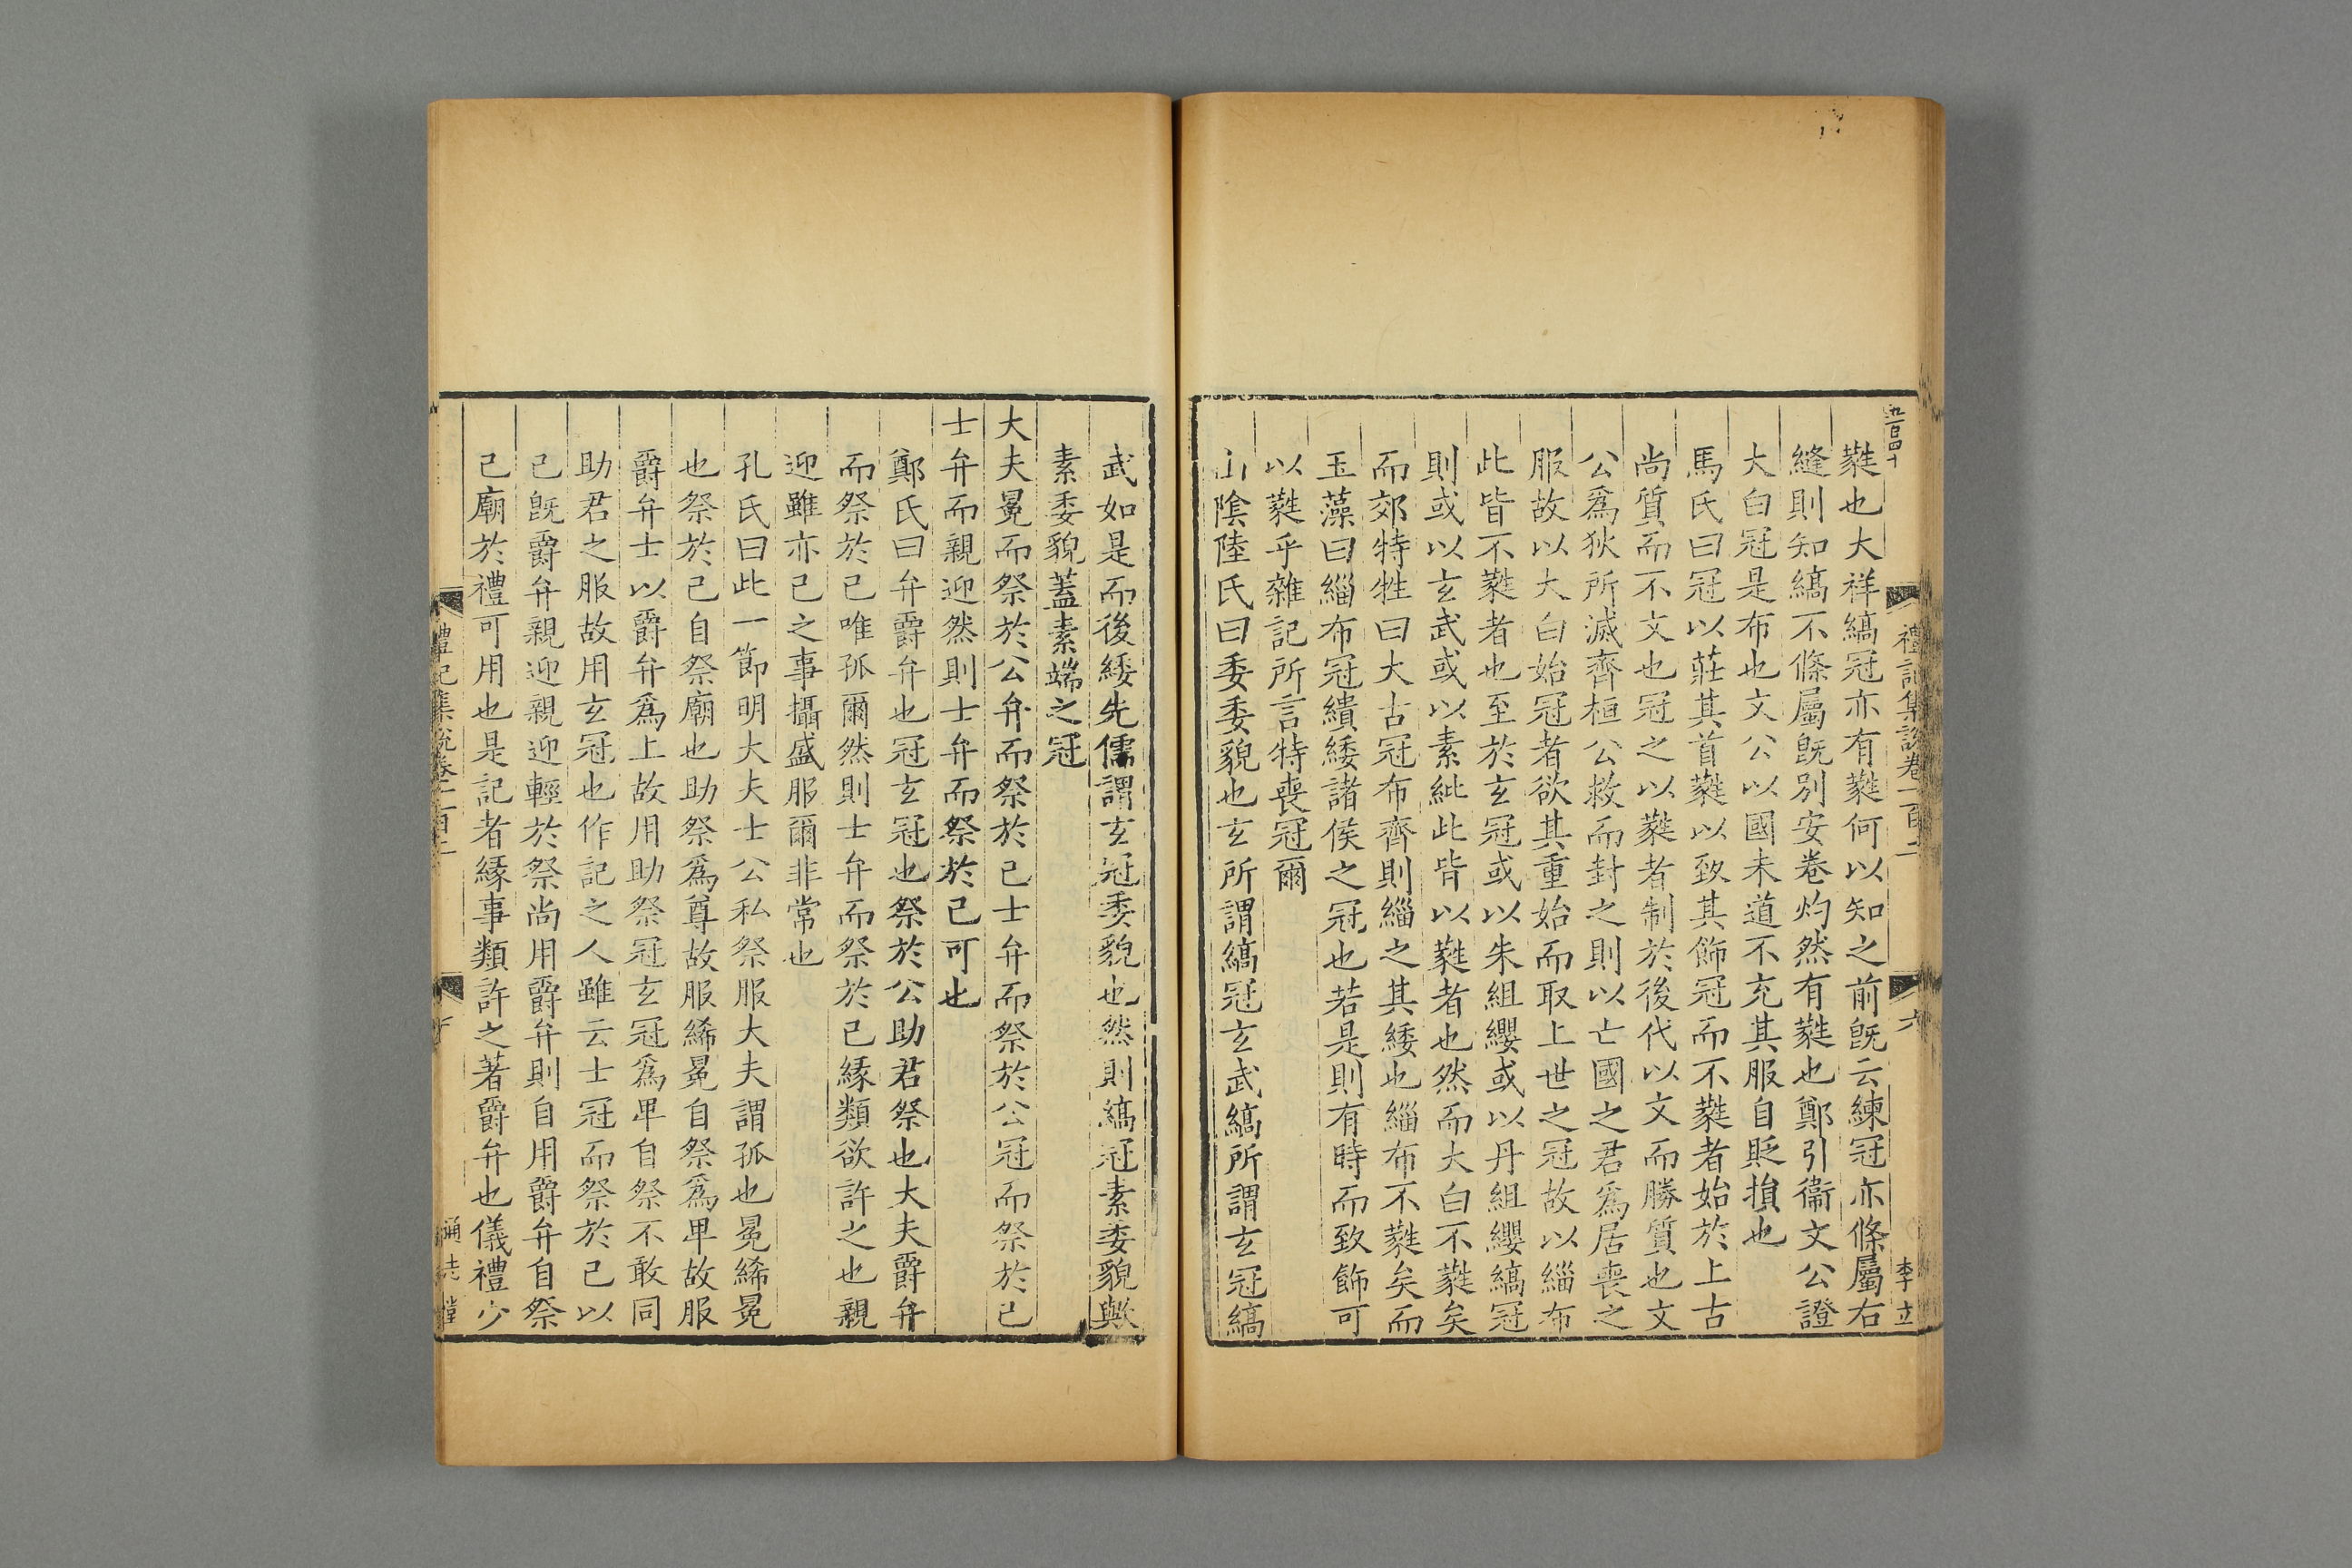 蕤也大祥縞冠亦有蕤何以知之前旣云練冠亦條屬右
縫則知縞不條屬旣別安卷灼然有蕤也鄭引衞文公證
大白冠是布也文公以國未道不充其服自貶損也
馬氏曰冠以莊其首蕤以致其飾冠而不蕤者始於上古
尚質而不文也冠之以蕤者制於後代以文而勝質也文
公爲狄所滅齊桓公救而封之則以亡國之君爲居喪之
服故以大白始冠者欲其重始而取上世之冠故以緇布
此皆不蕤者也至於玄冠或以朱組纓或以丹組纓縞冠
則或以玄武或以素紕此皆以蕤者也然而大白不蕤矣
而郊特牲曰大古冠布齊則緇之其緌也緇布不蕤矣而
玉藻曰緇布冠繢緌諸侯之冠也若是則有時而致飾可
以蕤乎雜記所言特喪冠爾
山陰陸氏曰委委貌也玄所謂縞冠玄武縞所謂玄冠縞
禮記集說卷一百二
六
李立
武如是而後緌先儒謂玄冠委貌也然則縞冠素委貌歟
素委貌蓋素端之冠
大夫冕而祭於公弁而祭於己士弁而祭於公冠而祭於己
士弁而親迎然則士弁而祭於己可也
鄭氏曰弁爵弁也冠玄冠也祭於公助君祭也大夫爵弁
而祭於己唯孤爾然則士弁而祭於己緣類欲許之也親
迎雖亦己之事攝盛服爾非常也
孔氏曰此一節明大夫士公私祭服大夫謂孤也冕絺冕
也祭於己自祭廟也助祭爲尊故服絺冕自祭爲卑故服
爵弁士以爵弁爲上故用助祭冠玄冠爲卑自祭不敢同
助君之服故用玄冠也作記之人雖云士冠而祭於己以
己旣爵弁親迎親迎輕於祭尚用爵弁則自用爵弁自祭
己廟於禮可用也是記者緣事類許之著爵弁也儀禮少
禮記集說卷一百二
通志堂